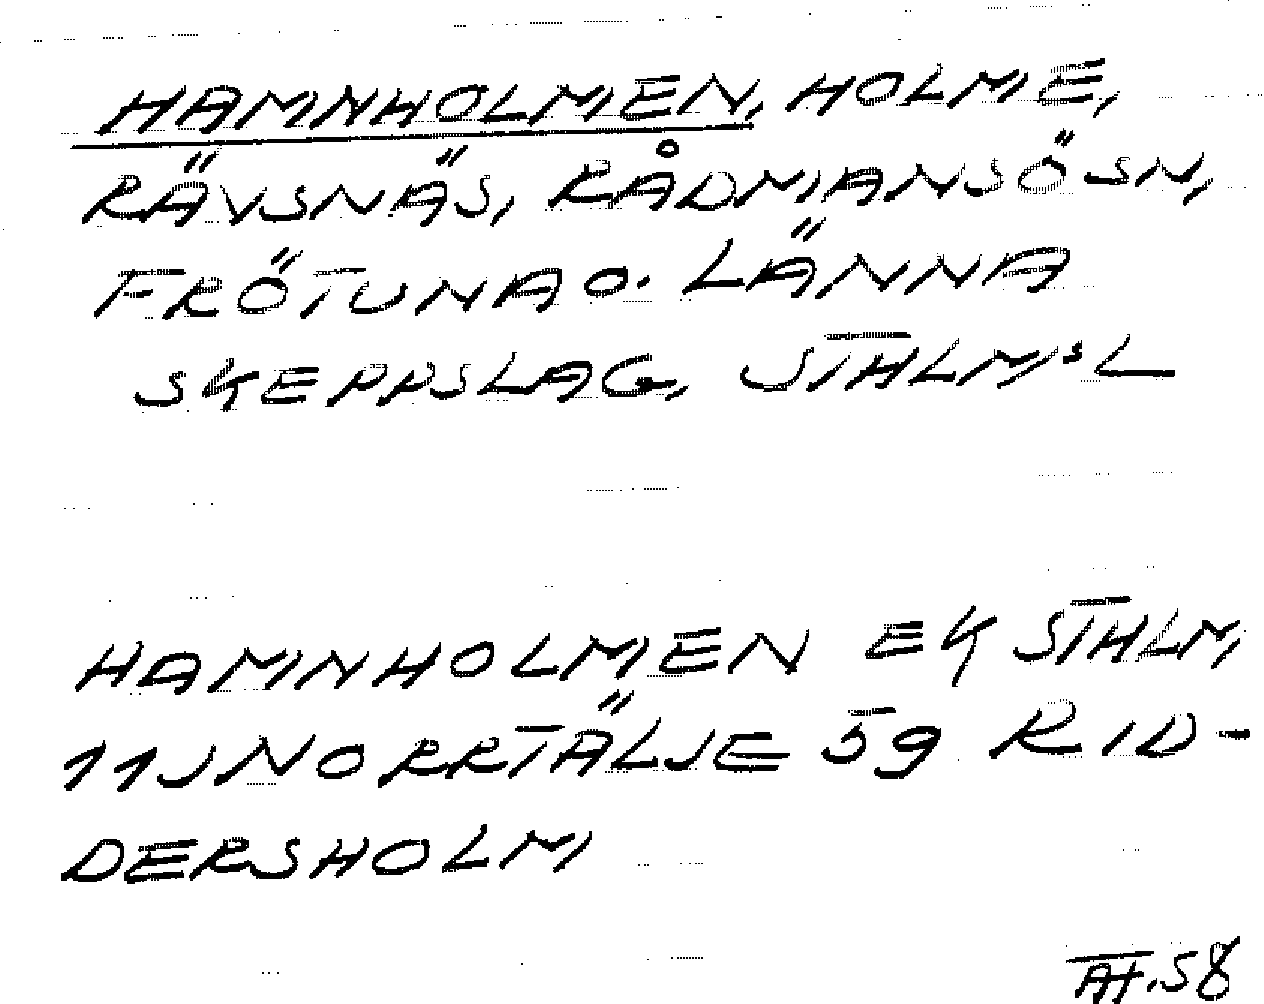 HAMNHOLMEN, HOLME,
RÄVSNÄS, RÅDMANSÖ SN,
FRÖTUNA O. LÄNNA
SKEPPSLAG, STHLMS L
HAMNHOLMEN EK STHLM
11J NORRTÄLJE 59 RID-
DERSHOLM
58